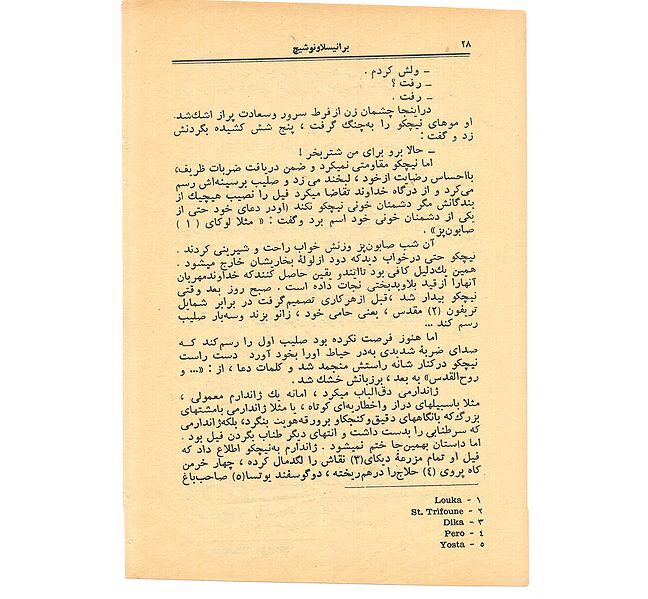 ۲۸
برانیسلاونوشیچ
– ولش کردم .
– رفت ؟
– رفت .
دراینجا چشمان زن ازفرط سرور وسعادت پراز اشك‌شد.
او موهای نیچکو را به‌چنگ گرفت ، پنج شش کشیده بگردنش
زد و گفت :
– حالا برو برای من شتربخر !
اما نیچکو مقاومتی نمیکرد و ضمن دریافت ضربات ظریف،
بااحساس رضایت ازخود ، لبخند می زد و صلیب برسینه‌اش رسم
می‌کرد و از درگاه خداوند تقاضا میکرد فیل را نصیب هیچیك از
بندگانش مگر دشمنان خونی نیچکو نکند (اودر دعای خود حتی از
یکی از دشمنان خونی خود اسم برد وگفت : « مثلا لوکای ( ۱ )
صابون‌پز» .
آن شب صابون‌پز وزنش خواب راحت و شیرینی کردند .
نیچکو حتی درخواب دیدکه دود ازلولهٔ بخاریشان خارج میشود .
همین یك‌دلیل کافی بود تاایندو یقین حاصل کنندکه خداوندمهربان
آنهارا ازقید بلاوبدبختی نجات داده است . صبح روز بعد وقتی
نیچکو بیدار شد ،قبل ازهرکاری تصمیم‌گرفت در برابر شمایل
تریفون (۲) مقدس ، یعنی حامی خود ، زانو بزند وسه‌بار صلیب
رسم کند ...
اما هنوز فرصت نکرده بود صلیب اول را رسم‌کند کـه
صدای ضربهٔ شدیدی به‌در حیاط اورا بخود آورد دست راست
نیچکو درکنار شانه راستش منجمد شد و کلمات دعا ، از : «... و
روح‌القدس» به بعد ، برزبانش خشك شد .
ژاندارمی دق‌الباب میکرد ، امانه یك ژاندارم معمولی ،
مثلا باسبیلهای دراز واخطاریه‌ای کوتاه ، یا مثلا ژاندارمی بامشتهای
بزرگ‌که بانگاههای دقیق‌وکنجکاو برورقه‌هویت بنگرد، بلکه‌ژاندارمی
که سرطنابی را بدست داشت و انتهای دیگر طناب بگردن فیل بود .
اما داستان بهمین‌جا ختم نمیشود . ژاندارم به‌نیچکو اطلاع داد که
فیل او تمام مزرعهٔ دیکای(۳) نقاش را لگدمال کرده ، چهار خرمن
کاه پروی (۴) حلاج‌را درهم‌ریخته ، دوگوسفند یوتسا(۵) صاحب‌باغ
۱ - Louka
۲ - St. Trifoune
۳ - Dika
۴ - Pero
۵ - Yosta